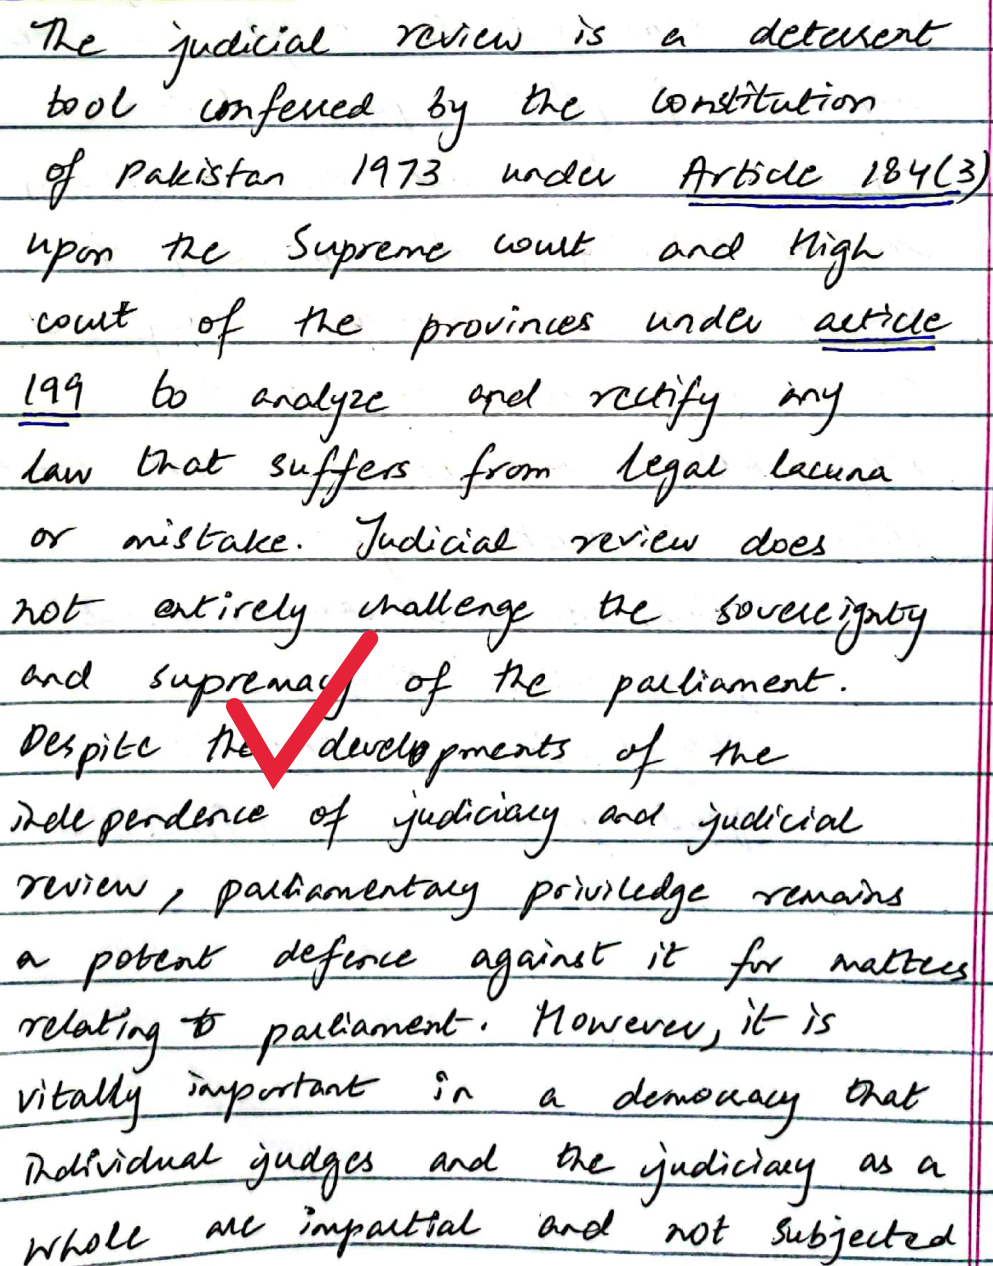 The judicial review is a deterrent
tool conferred by the constitution
of Pakistan 1973 under Article 184(3)
upon the Supreme court and High
court of the provinces under article
199 to analyze and rectify any
law that suffers from legal lacuna
or mistake. Judicial review does
not entirely challenge the sovereignty
and supremacy of the parliament.
Despite the developments of the
independence of judiciary and judicial
review, parliamentary priviledge remains
a potent defence against it for matters
relating to parliament. However, it is
vitally important in a democracy that
individual judges and the judiciary as a
whole are impartial and not subjected